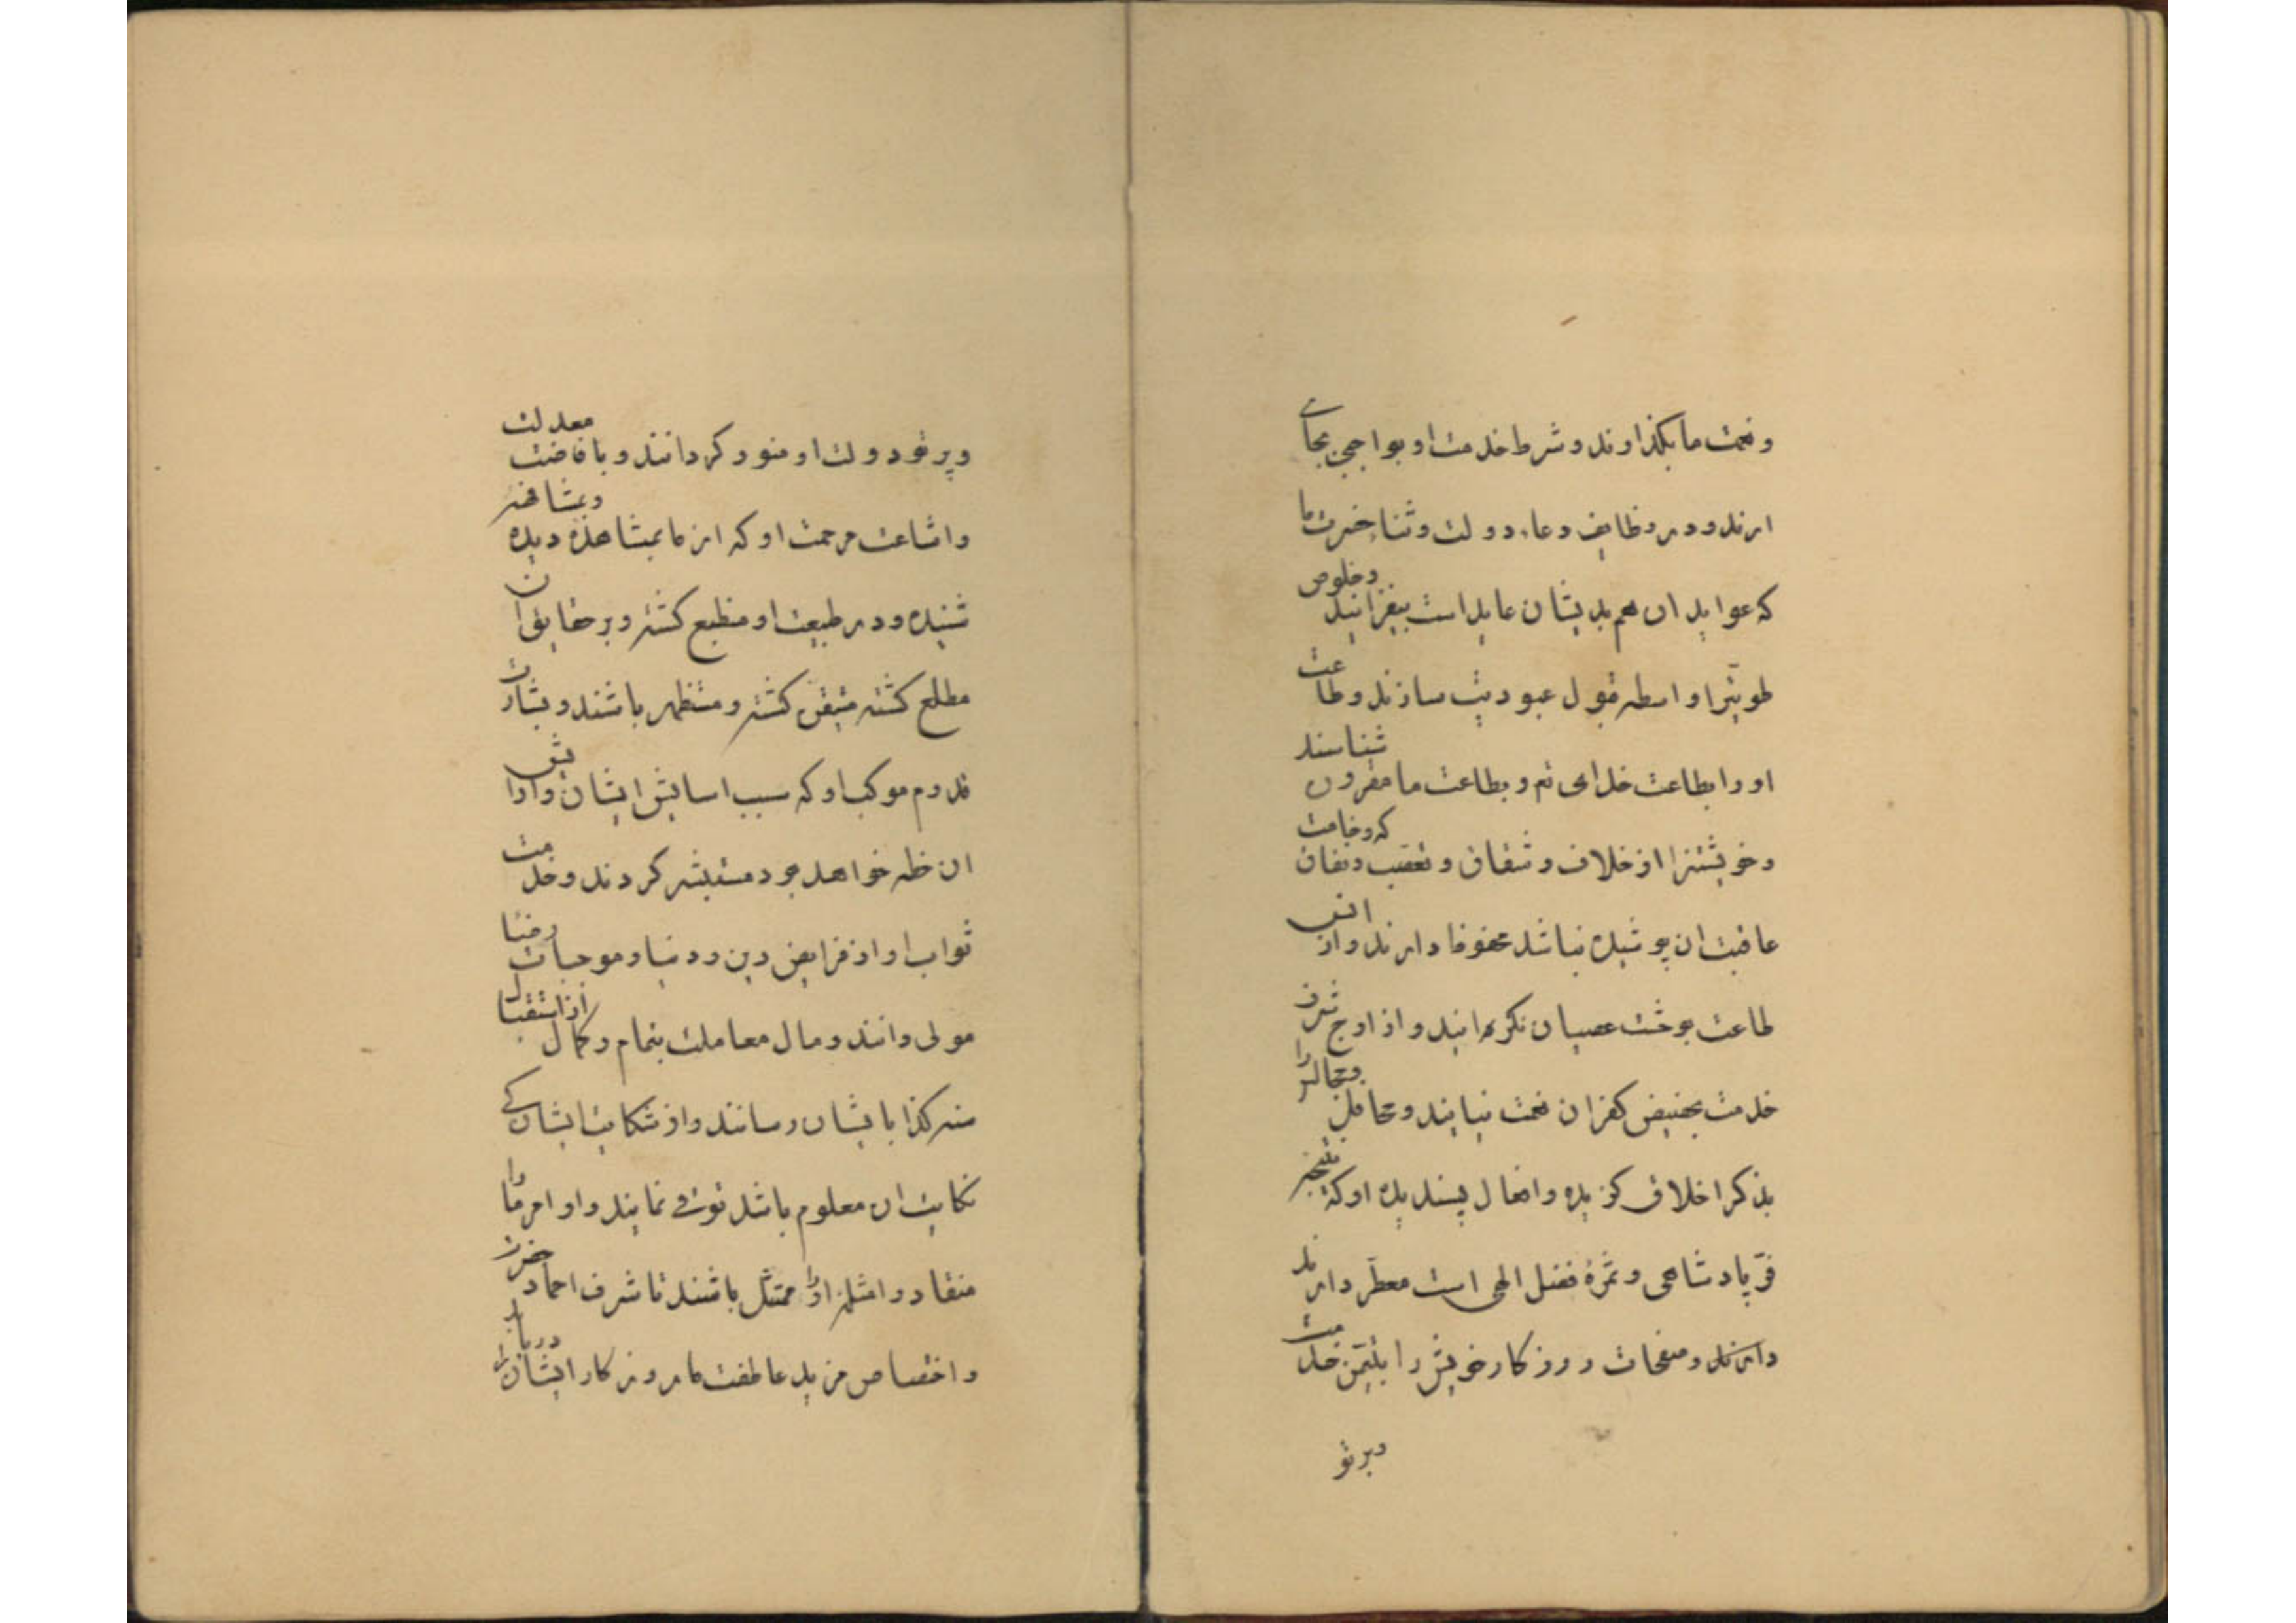 و نعمت ما بکذارند و شرط خدمت او بواجبی بجای
ارند و در وظایف دعاء دولت و ثنا حضرت ما
که عواید ان هم بدیشان عاید است بیفزایند و خلوص
طویترا واسطه قبول عبودیت سازند و طاعت
او را بطاعت خدای تم و بطاعت ما مقرون شناسند
و خویشتنرا از خلاف و شقاق و تعقب و نفاق که وخامت
عاقبت ان پوشیده نباشد محفوظ دارند و از انق
طاعت بوحشت عصیان نکرایند و از اوج شرف
خدمت بحضیض کفران نعمت نیایند و محافل و مجالس را
بذکر اخلاق کزیده و افعال پسندیده او که نتیجه
فرّ پادشاهی و ثمرهٔ فضل الهی است معطّر دارند
دارند و صفحات روزکار خویش را بتیمّن خدمت
و پرتو
و پرتو دولت او منور کردانند و بافاضت معدلت
و اشاعت مرحمت او که از ما بمشاهده دیده و بمشافهه
شنیده و در طبیعت او منطبع کشته و بر حقایق ان
مطلع کشته متیقن کشته و مستظهر باشند و بشارت
قدوم موکب او که سبب اسایش ایشان و ارایش
ان خطه خواهد بود مستبشر کردند و خدمت
ثواب او از فرایض دین و دنیا و موجبات رضا
مولی دانند و مال معاملت بتمام و کمال از استقبال
سنه کذا بایشان رسانند و از شکایت ایشان کی
نکایت ان معلوم باشد توقی نمایند و اوامر ما را
منقاد و امثله او را ممتثل باشند تا شرف احماد حضرت
و اختصاص مزید عاطفت ما روزکار ایشان را دریابد